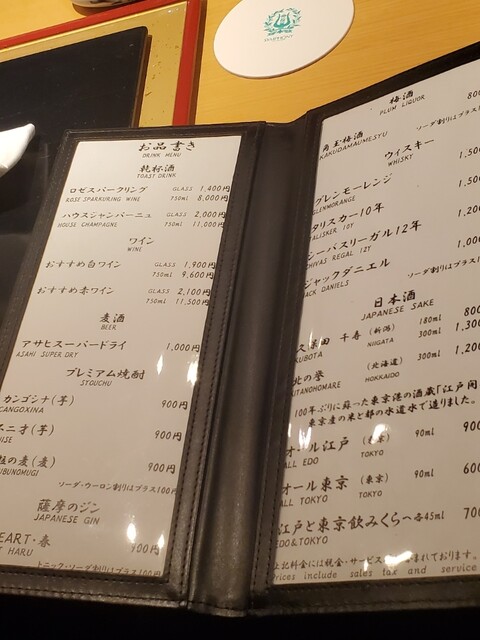 お品書き
DRINK MENU
乾杯酒
TOAST DRINK
ロゼスパークリング GLASS 1,400円
ROSE SPARKURING WINE 750ml 8,000円
ハウスシャンパーニュ GLASS 2,000円
HOUSE CHAMPAGNE 750ml 11,000円
ワイン
WINE
おすすめ白ワイン GLASS 1,900円
750ml 9,600円
おすすめ赤ワイン GLASS 2,100円
750ml 11,500円
麦酒
BEER
アサヒスーパードライ 1,000円
ASAHI SUPER DRY
プレミアム焼酎
SYOUCHU
カンゴシナ(芋) 900円
CANGOXINA
ニオ(芋) 900円
の麦(麦) 900円
BUNOMUGI
ソーダ・ウーロン割りはプラス100円
薩摩のジン
JAPANESE GIN
EART・春 900円
HARU
トニック・ソーダ割りはプラス100円
梅酒
PLUM LIQUOR
角玉梅酒 800
KAKUDAMAUMESYU
ソーダ割りはプラス
ウィスキー
WHISKY
グレンモーレンジ 1,500
GLENMORANGE
タリスカー10年 1,500
TALISKER 10Y
シーバスリーガル12年 1,200
CHIVAS REGAL 12Y
ジャックダニエル 1,000
JACK DANIELS
ソーダ割りはプラス1
日本酒
JAPANESE SAKE
久保田 千寿 (新潟) 180ml 800
KUBOTA NIIGATA 300ml 1,300
北の誉 (北海道) 300ml 1,200
KITANOHOMARE HOKKAIDO
100年ぶりに蘇った東京港の酒蔵「江戸開
東京産の米と都の水道水で造りました。
オール江戸 (東京) 90ml 900
ALL EDO TOKYO
オール東京 (東京) 90ml 600
ALL TOKYO TOKYO
江戸と東京飲みくらべ各45ml 700
EDO&TOKYO
上記料金には税金・サービス まれております。
rices include sales tax and service